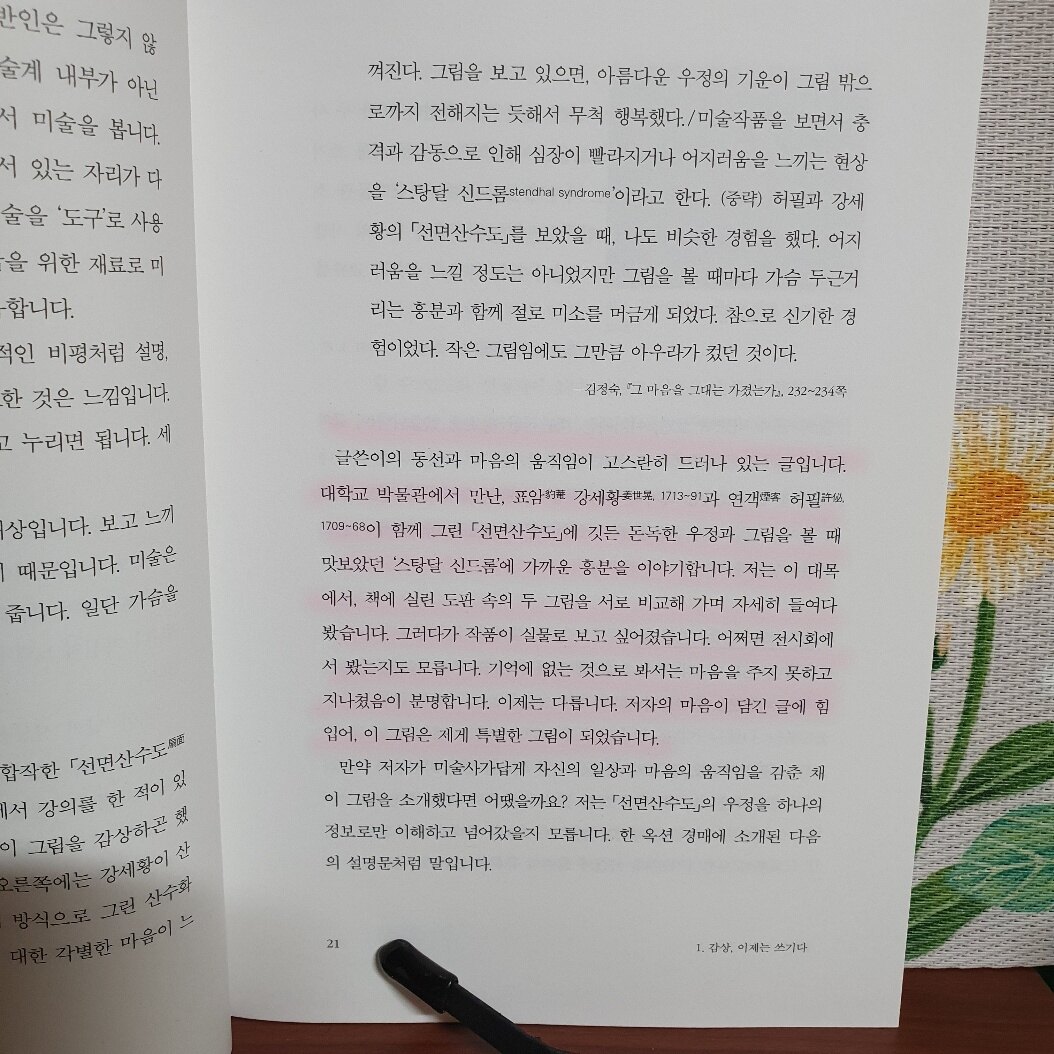 반인은 그렇지 않
술계 내부가 아닌
서 미술을 봅니다.
서 있는 자리가 다
술을 '도구'로 사용
을 위한 재료로 미
합니다.
적인 비평처럼 설명,
한 것은 느낌입니다.
고 누리면 됩니다. 세
상입니다. 보고 느끼
때문입니다. 미술은
줍니다. 일단 가슴을
합작한 「선면산수도扇面
에서 강의를 한 적이 있
이 그림을 감상하곤 했
오른쪽에는 강세황이 산
방식으로 그린 산수화
대한 각별한 마음이 느
껴진다. 그림을 보고 있으면, 아름다운 우정의 기운이 그림 밖으
로까지 전해지는 듯해서 무척 행복했다./미술작품을 보면서 충
격과 감동으로 인해 심장이 빨라지거나 어지러움을 느끼는 현상
을 '스탕달 신드롬stendhal syndrome'이라고 한다. (중략) 허필과 강세
황의 「선면산수도」를 보았을 때, 나도 비슷한 경험을 했다. 어지
러움을 느낄 정도는 아니었지만 그림을 볼 때마다 가슴 두근거
리는 흥분과 함께 절로 미소를 머금게 되었다. 참으로 신기한 경
험이었다. 작은 그림임에도 그만큼 아우라가 컸던 것이다.
김정숙, 『그 마음을 그대는 가졌는가』, 232~234쪽
글쓴이의 동선과 마음의 움직임이 고스란히 드러나 있는 글입니다.
대학교 박물관에서 만난, 표암豹菴 강세황姜世晃, 1713~91과 연객烟客 허필許佖,
1709~68이 함께 그린 「선면산수도」에 깃든 돈독한 우정과 그림을 볼 때
맛보았던 '스탕달 신드롬'에 가까운 흥분을 이야기합니다. 저는 이 대목
에서, 책에 실린 도판 속의 두 그림을 서로 비교해 가며 자세히 들여다
봤습니다. 그러다가 작품이 실물로 보고 싶어졌습니다. 어쩌면 전시회에
서 봤는지도 모릅니다. 기억에 없는 것으로 봐서는 마음을 주지 못하고
지나쳤음이 분명합니다. 이제는 다릅니다. 저자의 마음이 담긴 글에 힘
입어, 이 그림은 제게 특별한 그림이 되었습니다.
만약 저자가 미술사가답게 자신의 일상과 마음의 움직임을 감춘 채
이 그림을 소개했다면 어땠을까요? 저는 「선면산수도」의 우정을 하나의
정보로만 이해하고 넘어갔을지 모릅니다. 한 옥션 경매에 소개된 다음
의 설명문처럼 말입니다.
21
1. 감상, 이제는 쓰기다